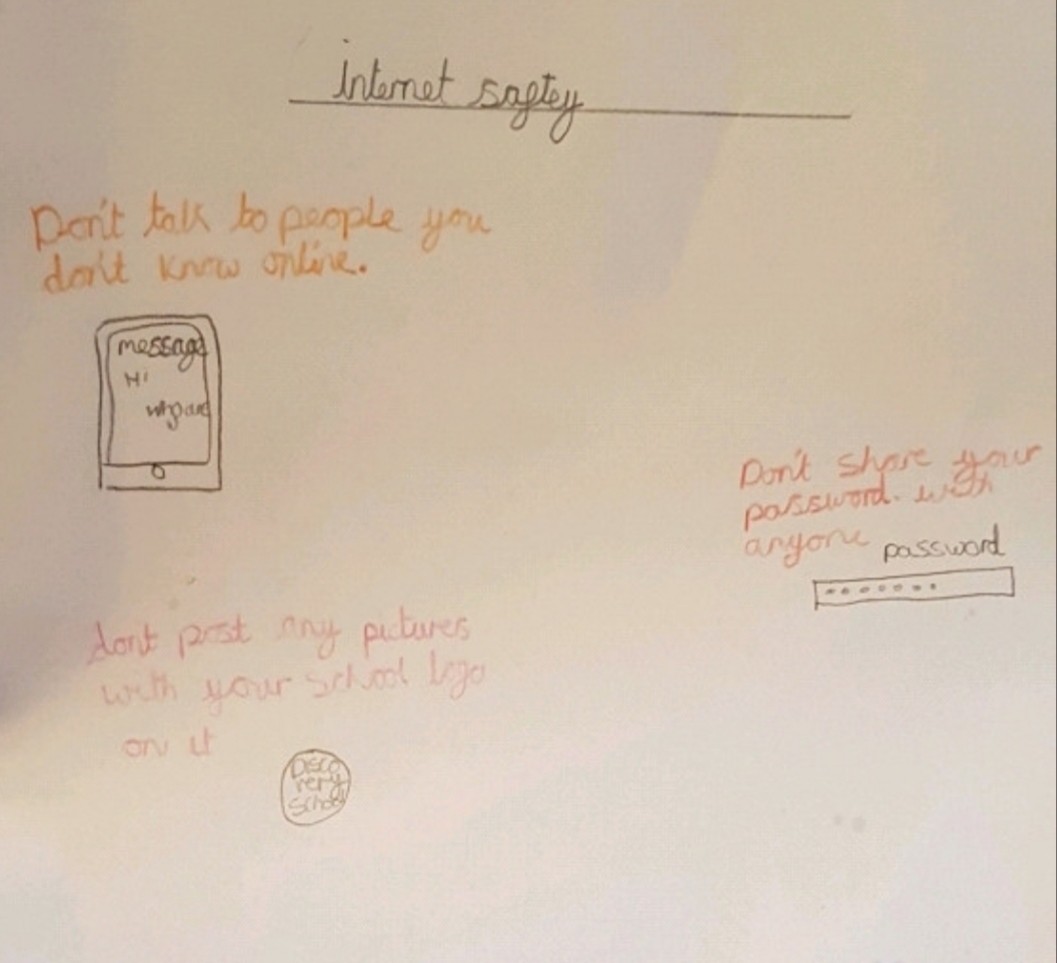 internet saftey
Don't talk to people you
don't know online.
message
Hi
Don't share your
password. with
anyone
password
dont post any pictures
with your school logo
on it
Disco
very
School